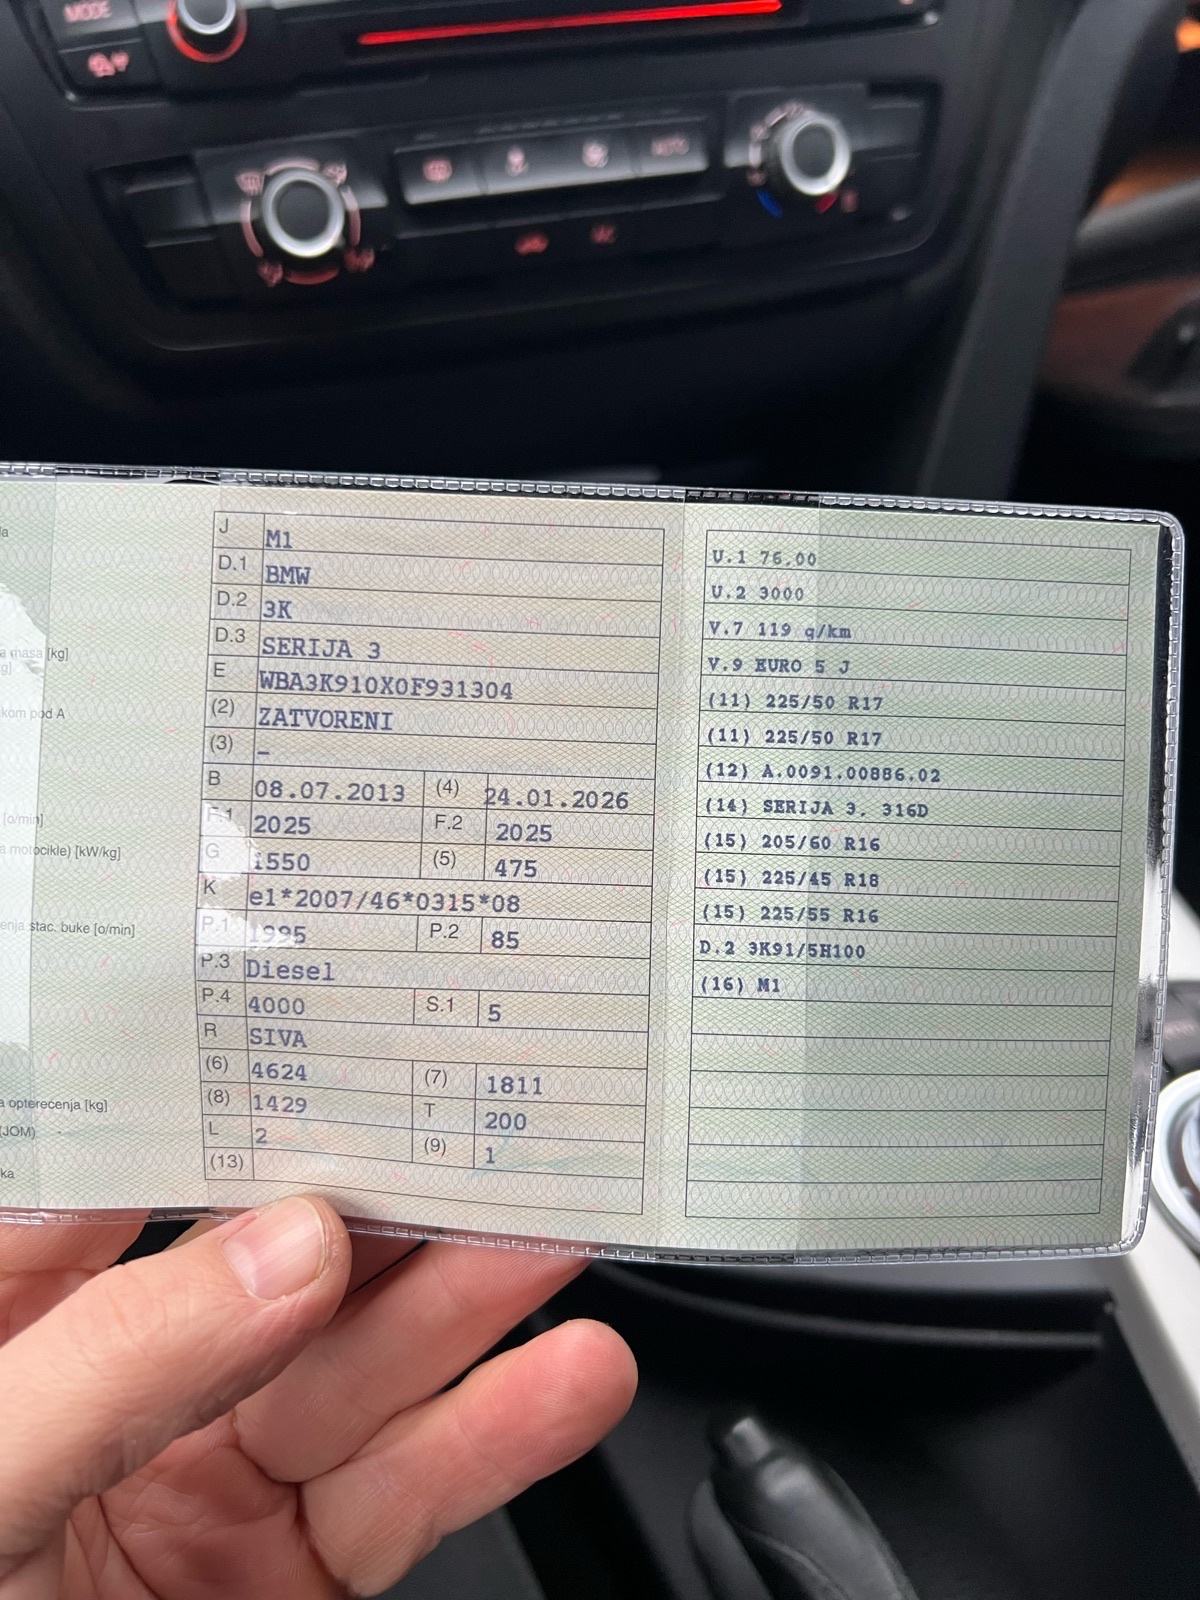 MODE
AUTO
a masa [kg]
g]
kom pod A
[o/min]
a motocikle) [kW/kg]
enja stac. buke [o/min]
a opterecenja [kg]
(JOM) -
ka
J M1
D.1 BMW
D.2 3K
D.3 SERIJA 3
E WBA3K910X0F931304
(2) ZATVORENI
(3) –
B 08.07.2013 (4) 24.01.2026
F.1 2025 F.2 2025
G 1550 (5) 475
K e1*2007/46*0315*08
P.1 1995 P.2 85
P.3 Diesel
P.4 4000 S.1 5
R SIVA
(6) 4624 (7) 1811
(8) 1429 T 200
L 2 (9) 1
(13)
U.1 76,00
U.2 3000
V.7 119 g/km
V.9 EURO 5 J
(11) 225/50 R17
(11) 225/50 R17
(12) A.0091.00886.02
(14) SERIJA 3, 316D
(15) 205/60 R16
(15) 225/45 R18
(15) 225/55 R16
D.2 3K91/5H100
(16) M1